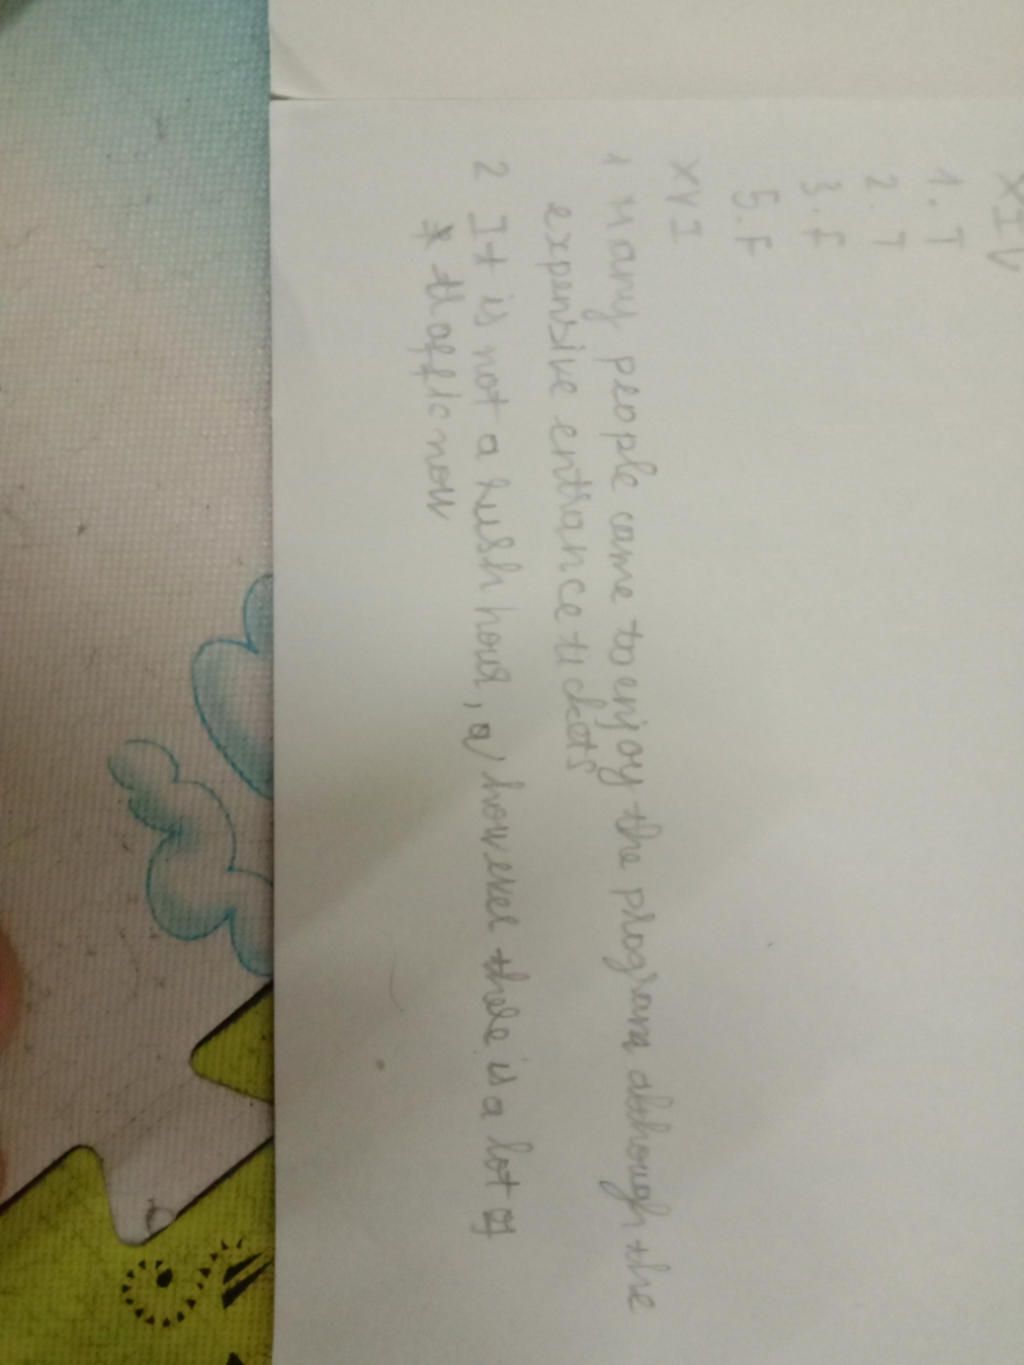 XIV
1. T
2. T
3. F
5. F
XVI
1 Many people came to enjoy the program although the
expensive entrance tickets
2 It is not a rush hour, however there is a lot of
traffic now